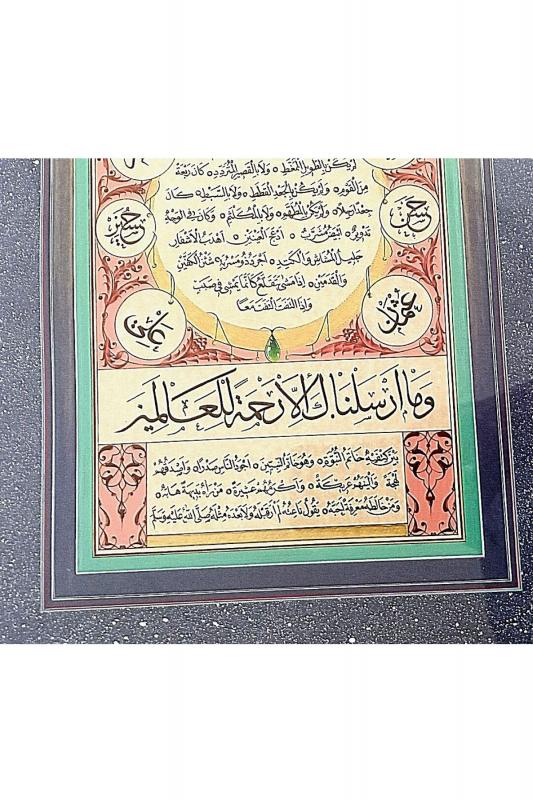 لم يكن بالطويل الممغط ولا بالقصير المتردد كان ربعة
من القوم ولم يكن بالجعد القطط ولا بالسبط كان
جعدا رجلا ولم يكن بالمطهم ولا بالمكلثم وكان في الوجه
تدوير ابيض مشرب ادعج العينين اهدب الاشفار
جليل المشاش والكتد اجرد ذو مسربة شثن الكفين
والقدمين اذا مشى يتقلع كأنما يمشي في صبب
واذا التفت التفت معا
حسن
حسين
عثمن
وما ارسلناك الا رحمة للعالمين
بين كتفيه خاتم النبوة وهو خاتم النبيين اجود الناس صدرا واصدقهم
لهجة والينهم عريكة واكرمهم عشيرة من رآه بديهة هابه
ومن خالطه معرفة احبه يقول ناعته لم ار قبله ولا بعده مثله صلى الله عليه وسلم